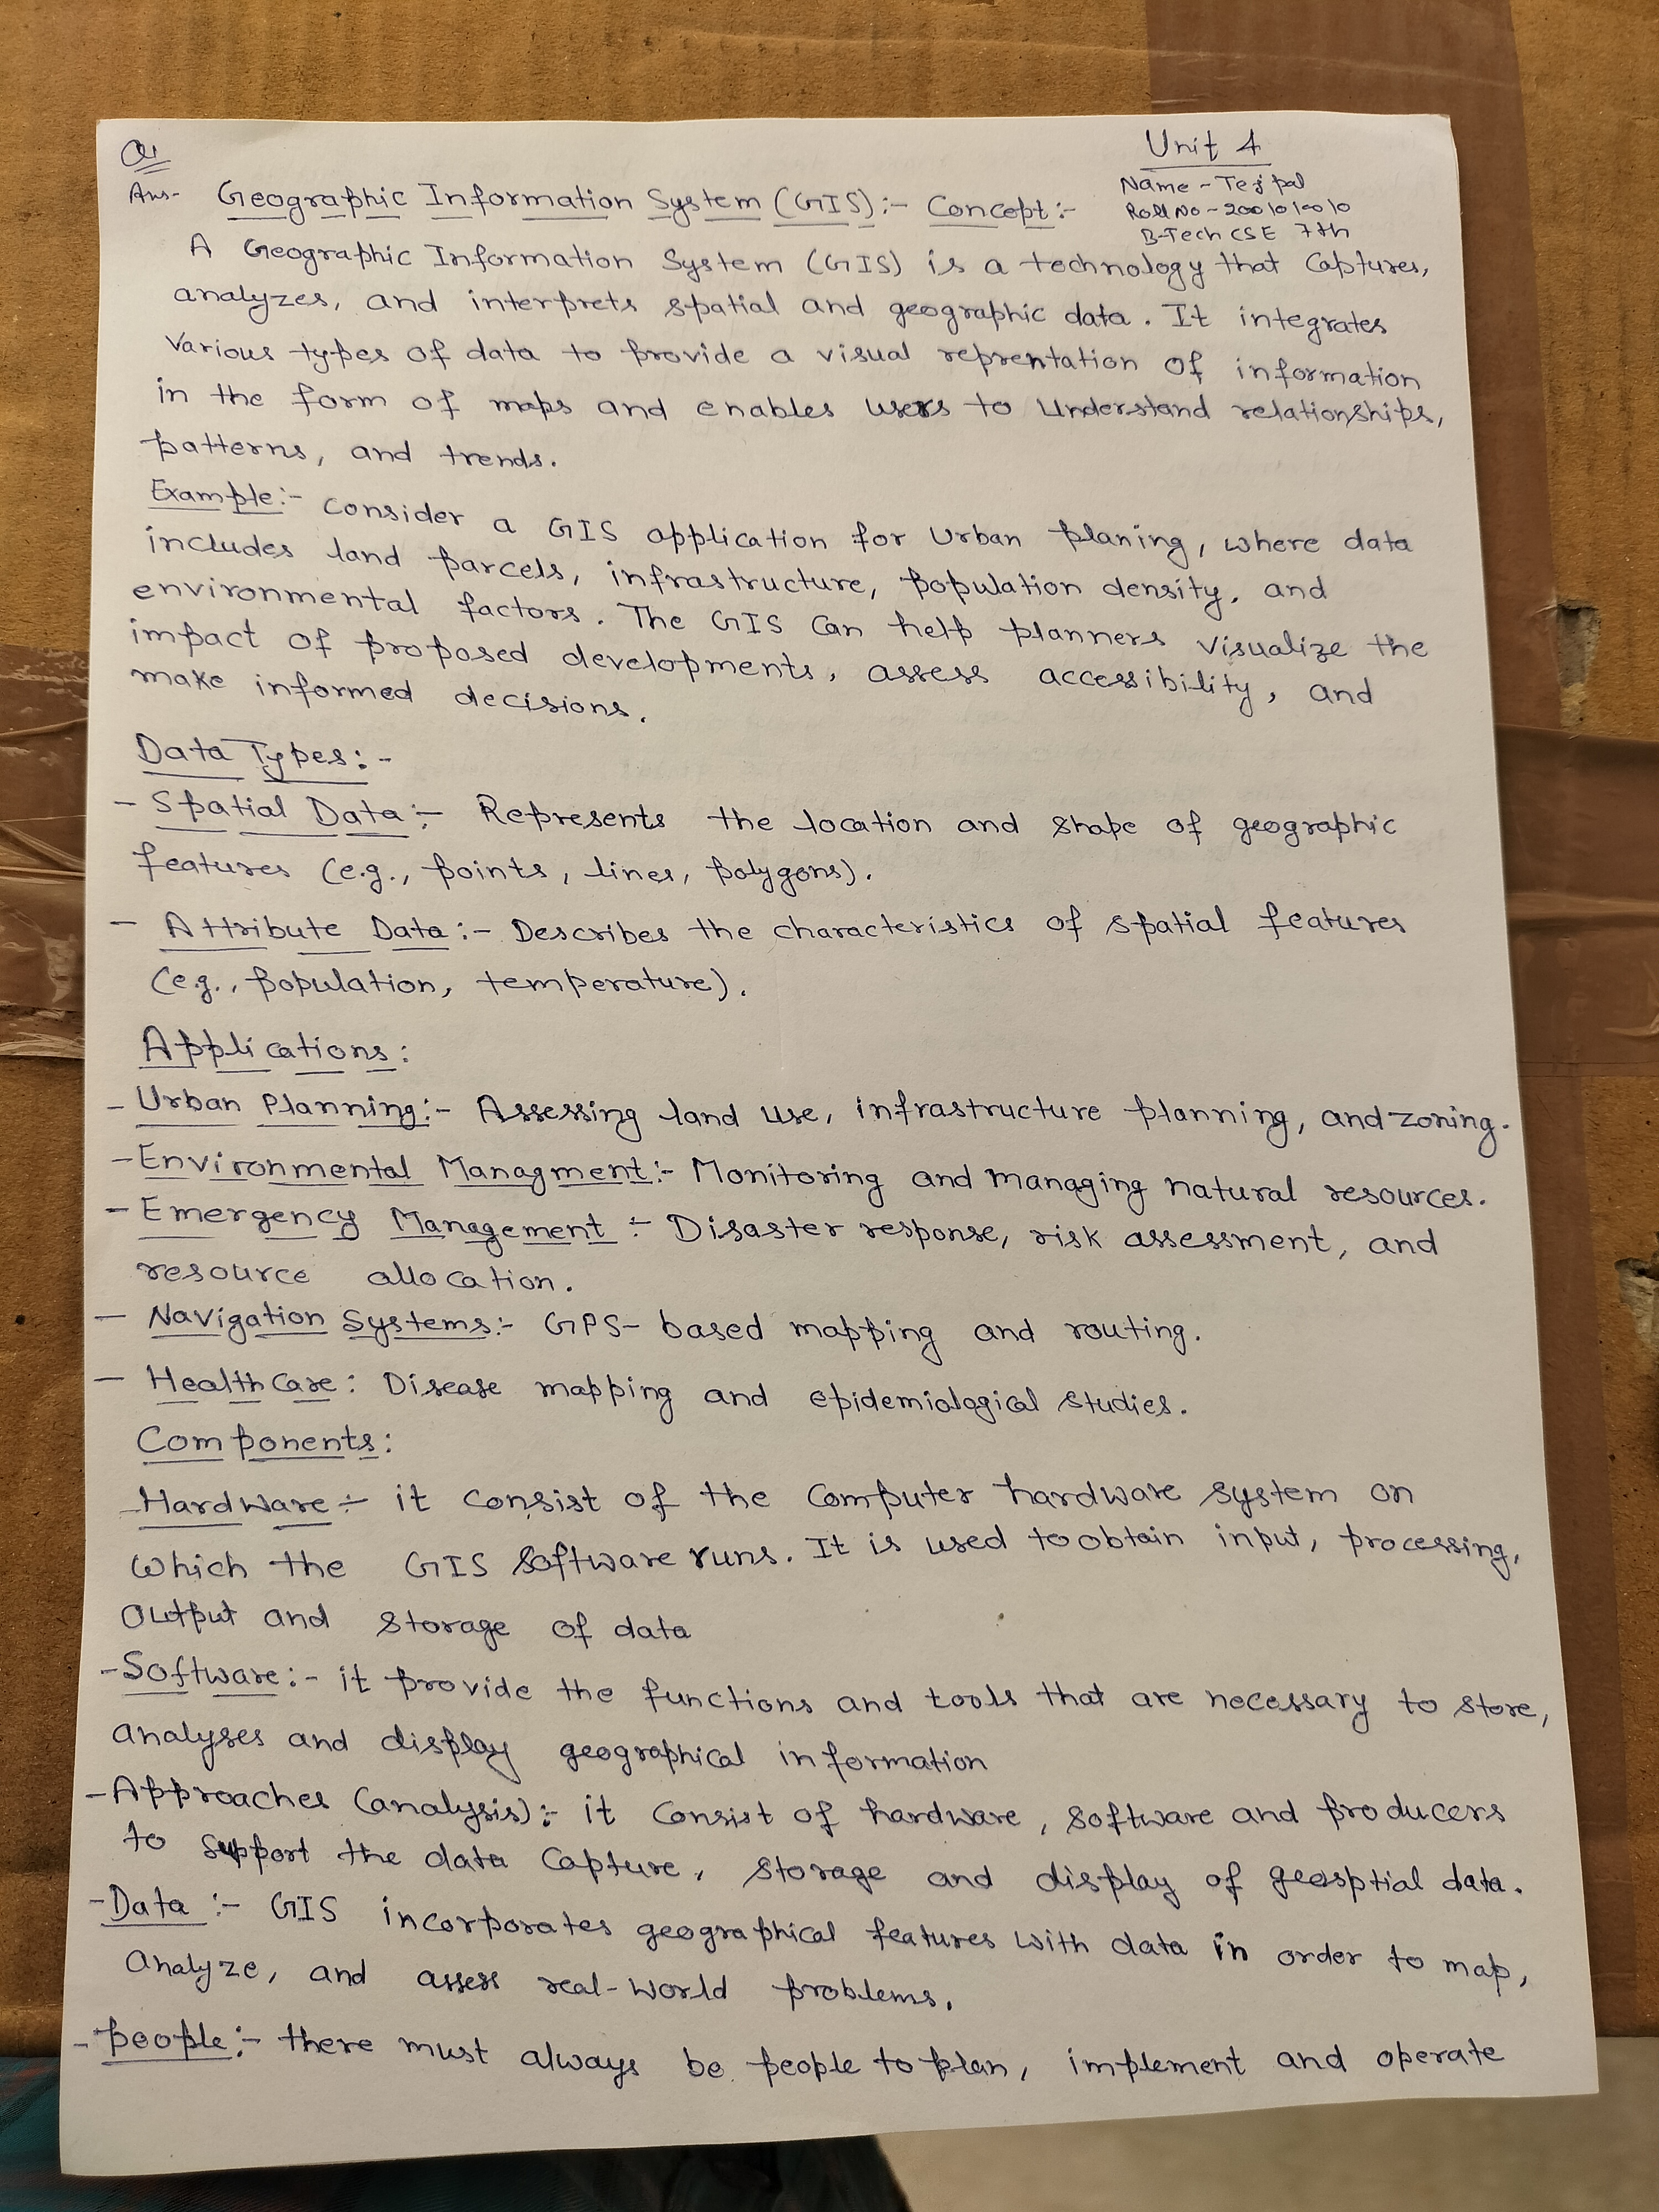 Q1
Unit 4
Name - Tejpal
Roll No - 200101010
B-Tech CSE 7th
Ans- Geographic Information System (GIS):- Concept:-
A Geographic Information System (GIS) is a technology that Captures,
analyzes, and interprets spatial and geographic data. It integrates
Various types of data to provide a visual reprentation of information
in the form of maps and enables users to Understand relationships,
patterns, and trends.
Example:- Consider a GIS application for Urban planing, where data
includes land parcels, infrastructure, population density, and
environmental factors. The GIS Can help planners visualize the
impact of proposed developments, assess accessibility, and
make informed decisions.
Data Types:-
- Spatial Data:- Represents the location and shape of geographic
features (e.g., points, lines, polygons).
- Attribute Data:- Describes the characteristics of spatial features
(e.g., population, temperature).
Applications:
- Urban Planning:- Assessing land use, infrastructure planning, and zoning.
- Environmental Managment:- Monitoring and managing natural resources.
- Emergency Management:- Disaster response, risk assessment, and
resource allocation.
- Navigation Systems:- GPS- based mapping and routing.
- Health Care: Disease mapping and epidemiological studies.
Components:
- Hardware:- it Consist of the Computer hardware system on
which the GIS Software runs. It is used to obtain input, processing,
output and storage of data
- Software:- it provide the functions and tools that are necessary to store,
analyses and display geographical information
- Approaches (analysis):- it Consist of hardware, software and producers
to support the data Capture, storage and display of geosptial data.
- Data:- GIS incorporates geographical features with data in order to map,
analyze, and assess real-world problems.
- people:- there must always be people to plan, implement and operate